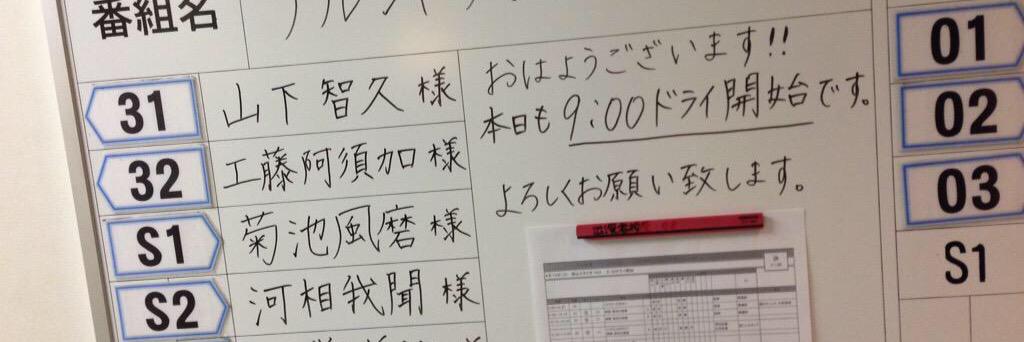 番組名
31 山下智久様
32 工藤阿須加様
S1 菊池風磨様
S2 河相我聞様
おはようございます!!
本日も9:00ドライ開始です。
よろしくお願い致します。
01
02
03
S1